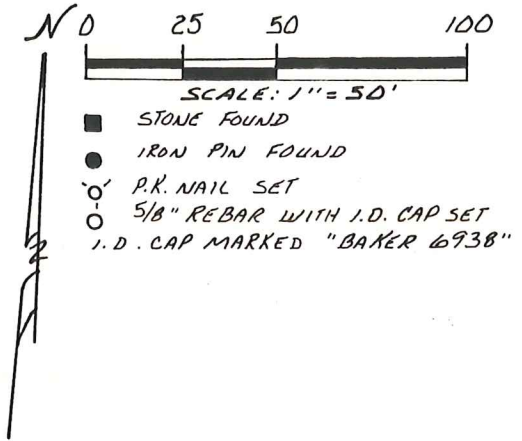 N 0 25 50 100
SCALE: 1" = 50'
STONE FOUND
IRON PIN FOUND
P.K. NAIL SET
5/8" REBAR WITH I.D. CAP SET
I.D. CAP MARKED "BAKER 6938"